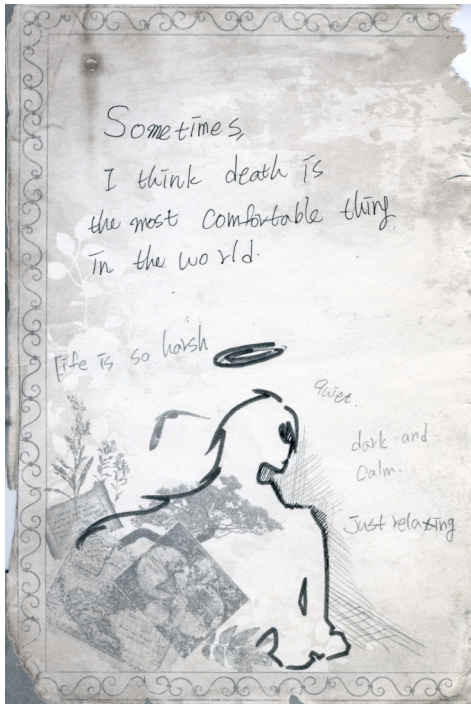 Sometimes,
I think death is
the most comfortable thing
in the world.
Life is so harsh
quiet..
dark and
calm.
Just relaxing